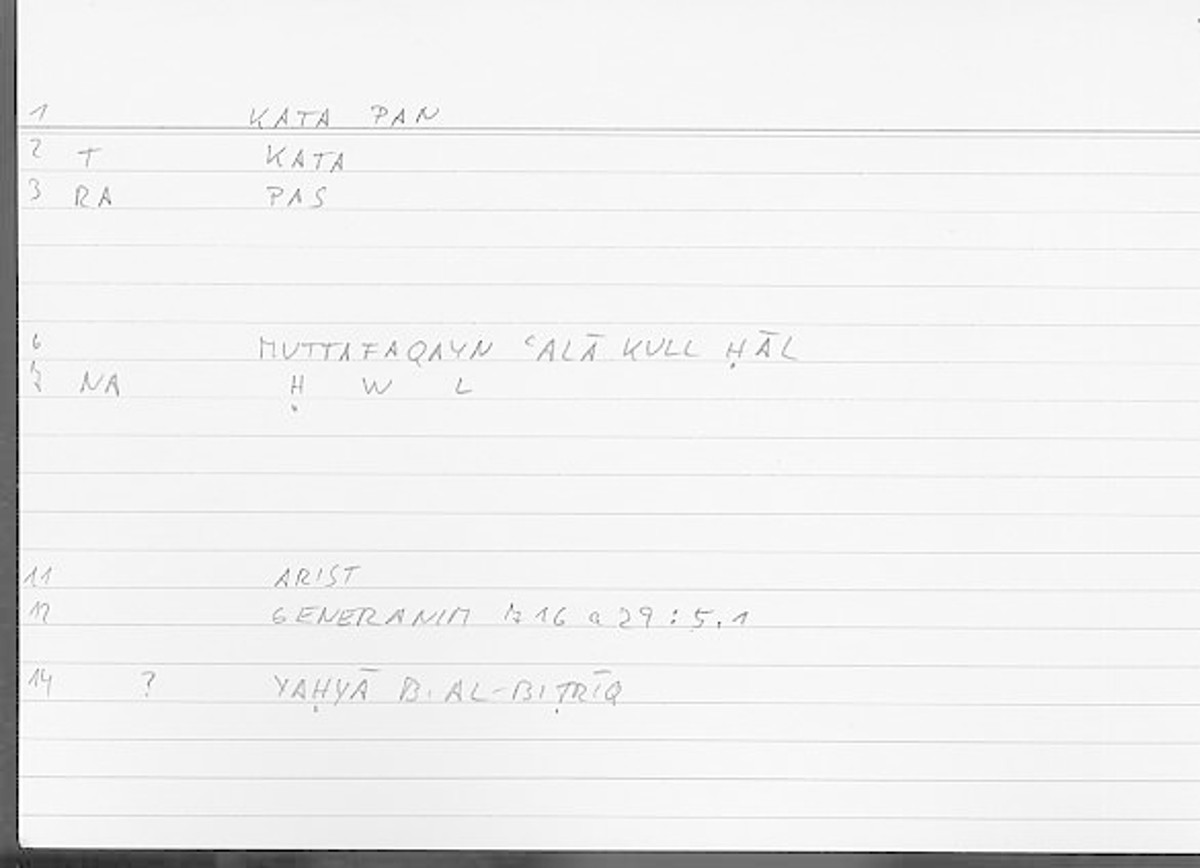 1 KATA PAN
2 T KATA
3 RA PAS
6 MUTTAFAQAYN ʿALĀ KULL ḤĀL
7 NA Ḥ W L
11 ARIST
12 GENERANIM 716 a 29 : 5.1
14 ? YAḤYĀ B. AL-BIṬRĪQ